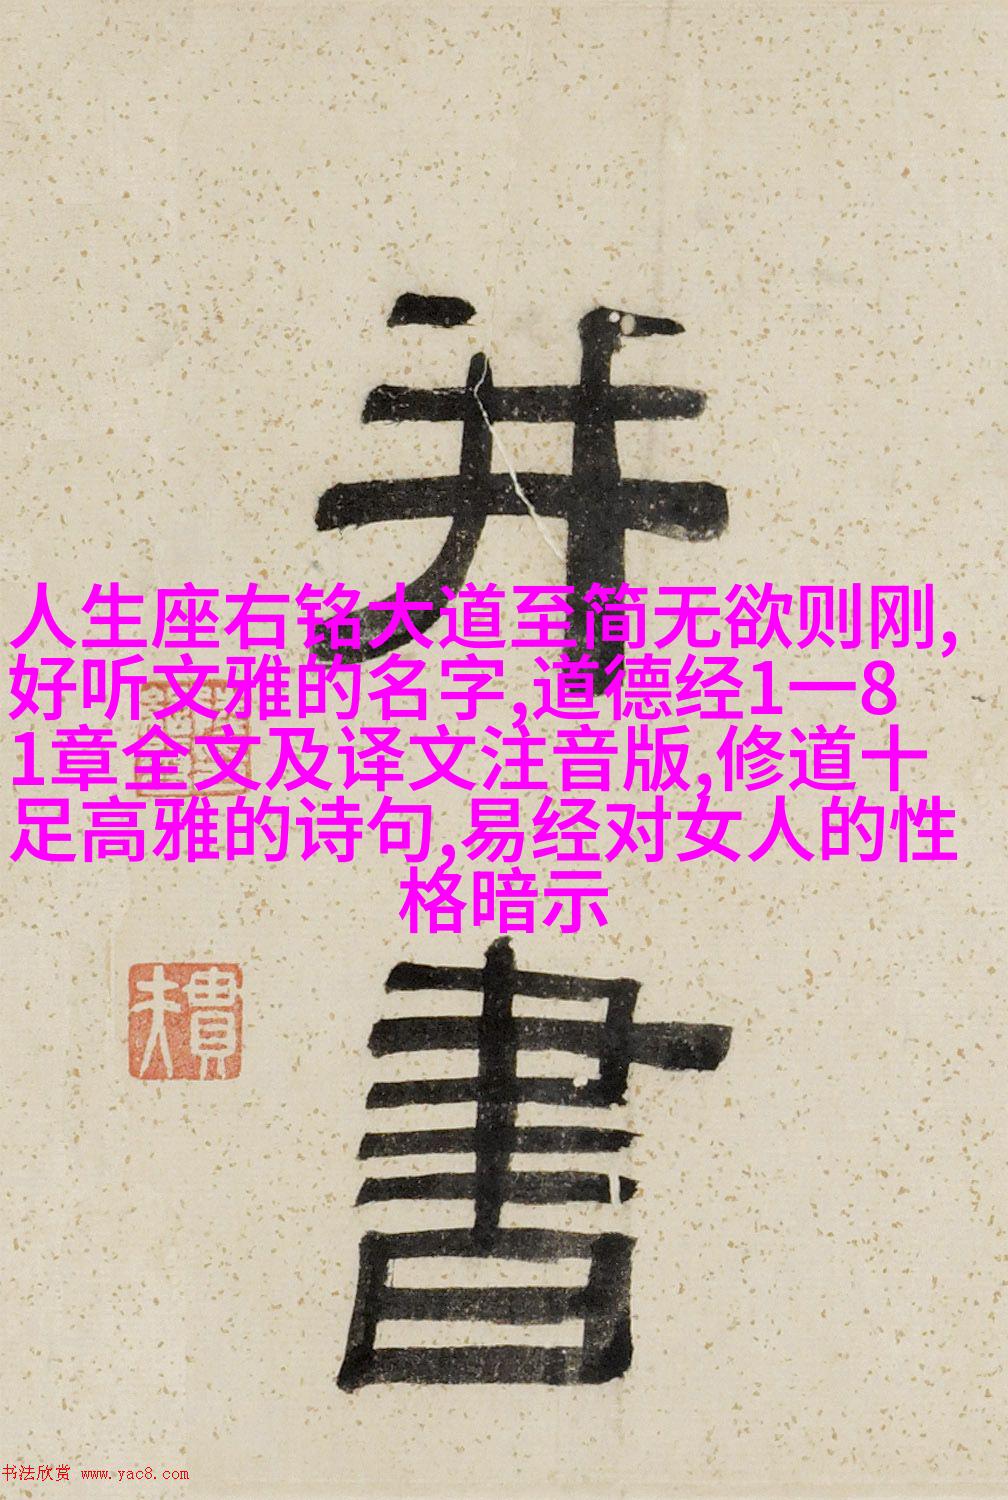 并
人生座右铭大道至简无欲则刚,
好听文雅的名字,道德经1一8
1章全文及译文注音版,修道十
足高雅的诗句,易经对女人的性
格暗示
書
书法欣赏 www.yac8.com